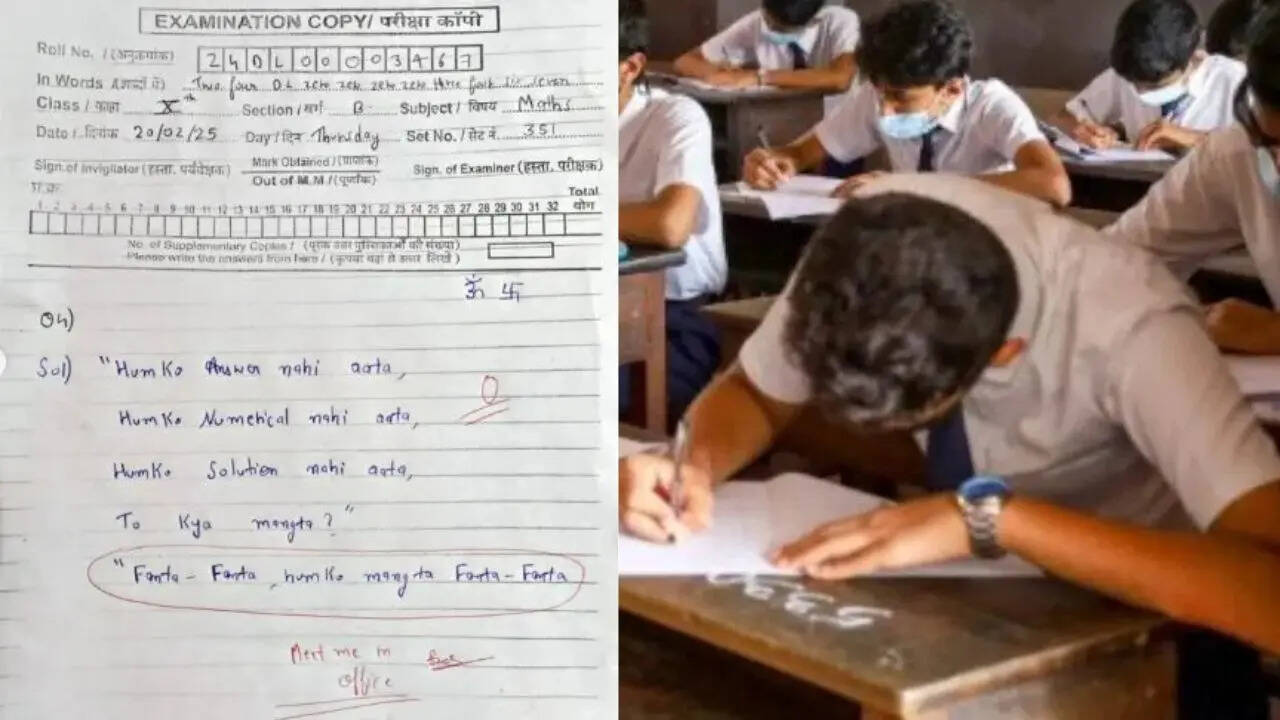 EXAMINATION COPY/ परीक्षा कॉपी
Roll No. / (अनुक्रमांक) 24DL00003467
In Words / (शब्दों में) Two four DL zero zero zero zero three four six seven
Class / कक्षा Xth Section / वर्ग B Subject / विषय Maths
Date / दिनांक 20/02/25 Day / दिन Thursday Set No. / सेट नं. 351
Sign. of Invigilator (हस्ता. पर्यवेक्षक) Mark Obtained / (प्राप्तांक) Sign. of Examiner (हस्ता. परीक्षक)
Out of M.M / (पूर्णांक)
प्र.क्र. Total
1 2 3 4 5 6 7 8 9 10 11 12 13 14 15 16 17 18 19 20 21 22 23 24 25 26 27 28 29 30 31 32 योग
No. of Supplementary Copies / (पूरक उत्तर पुस्तिकाओं की संख्या)
Please write the answers from here / (कृपया यहां से उत्तर लिखें)
ॐ 卐
Q4)
Sol) "Humko Answer nahi aata,
0
Humko Numerical nahi aata,
Humko Solution nahi aata,
To Kya mangta?"
"Fanta - Fanta, humko mangta Fanta - Fanta
Meet me in
office